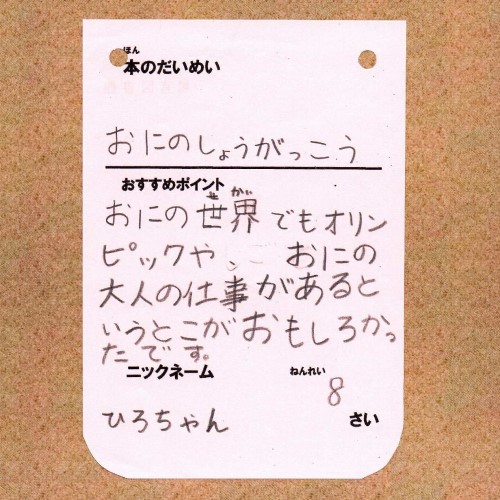 ほん
本のだいめい
おにのしょうがっこう
おすすめポイント
せかい
おにの世界でもオリン
ピックや、おにの
大人の仕事があると
いうとこがおもしろかっ
たです。
ニックネーム
ねんれい
8
ひろちゃん
さい